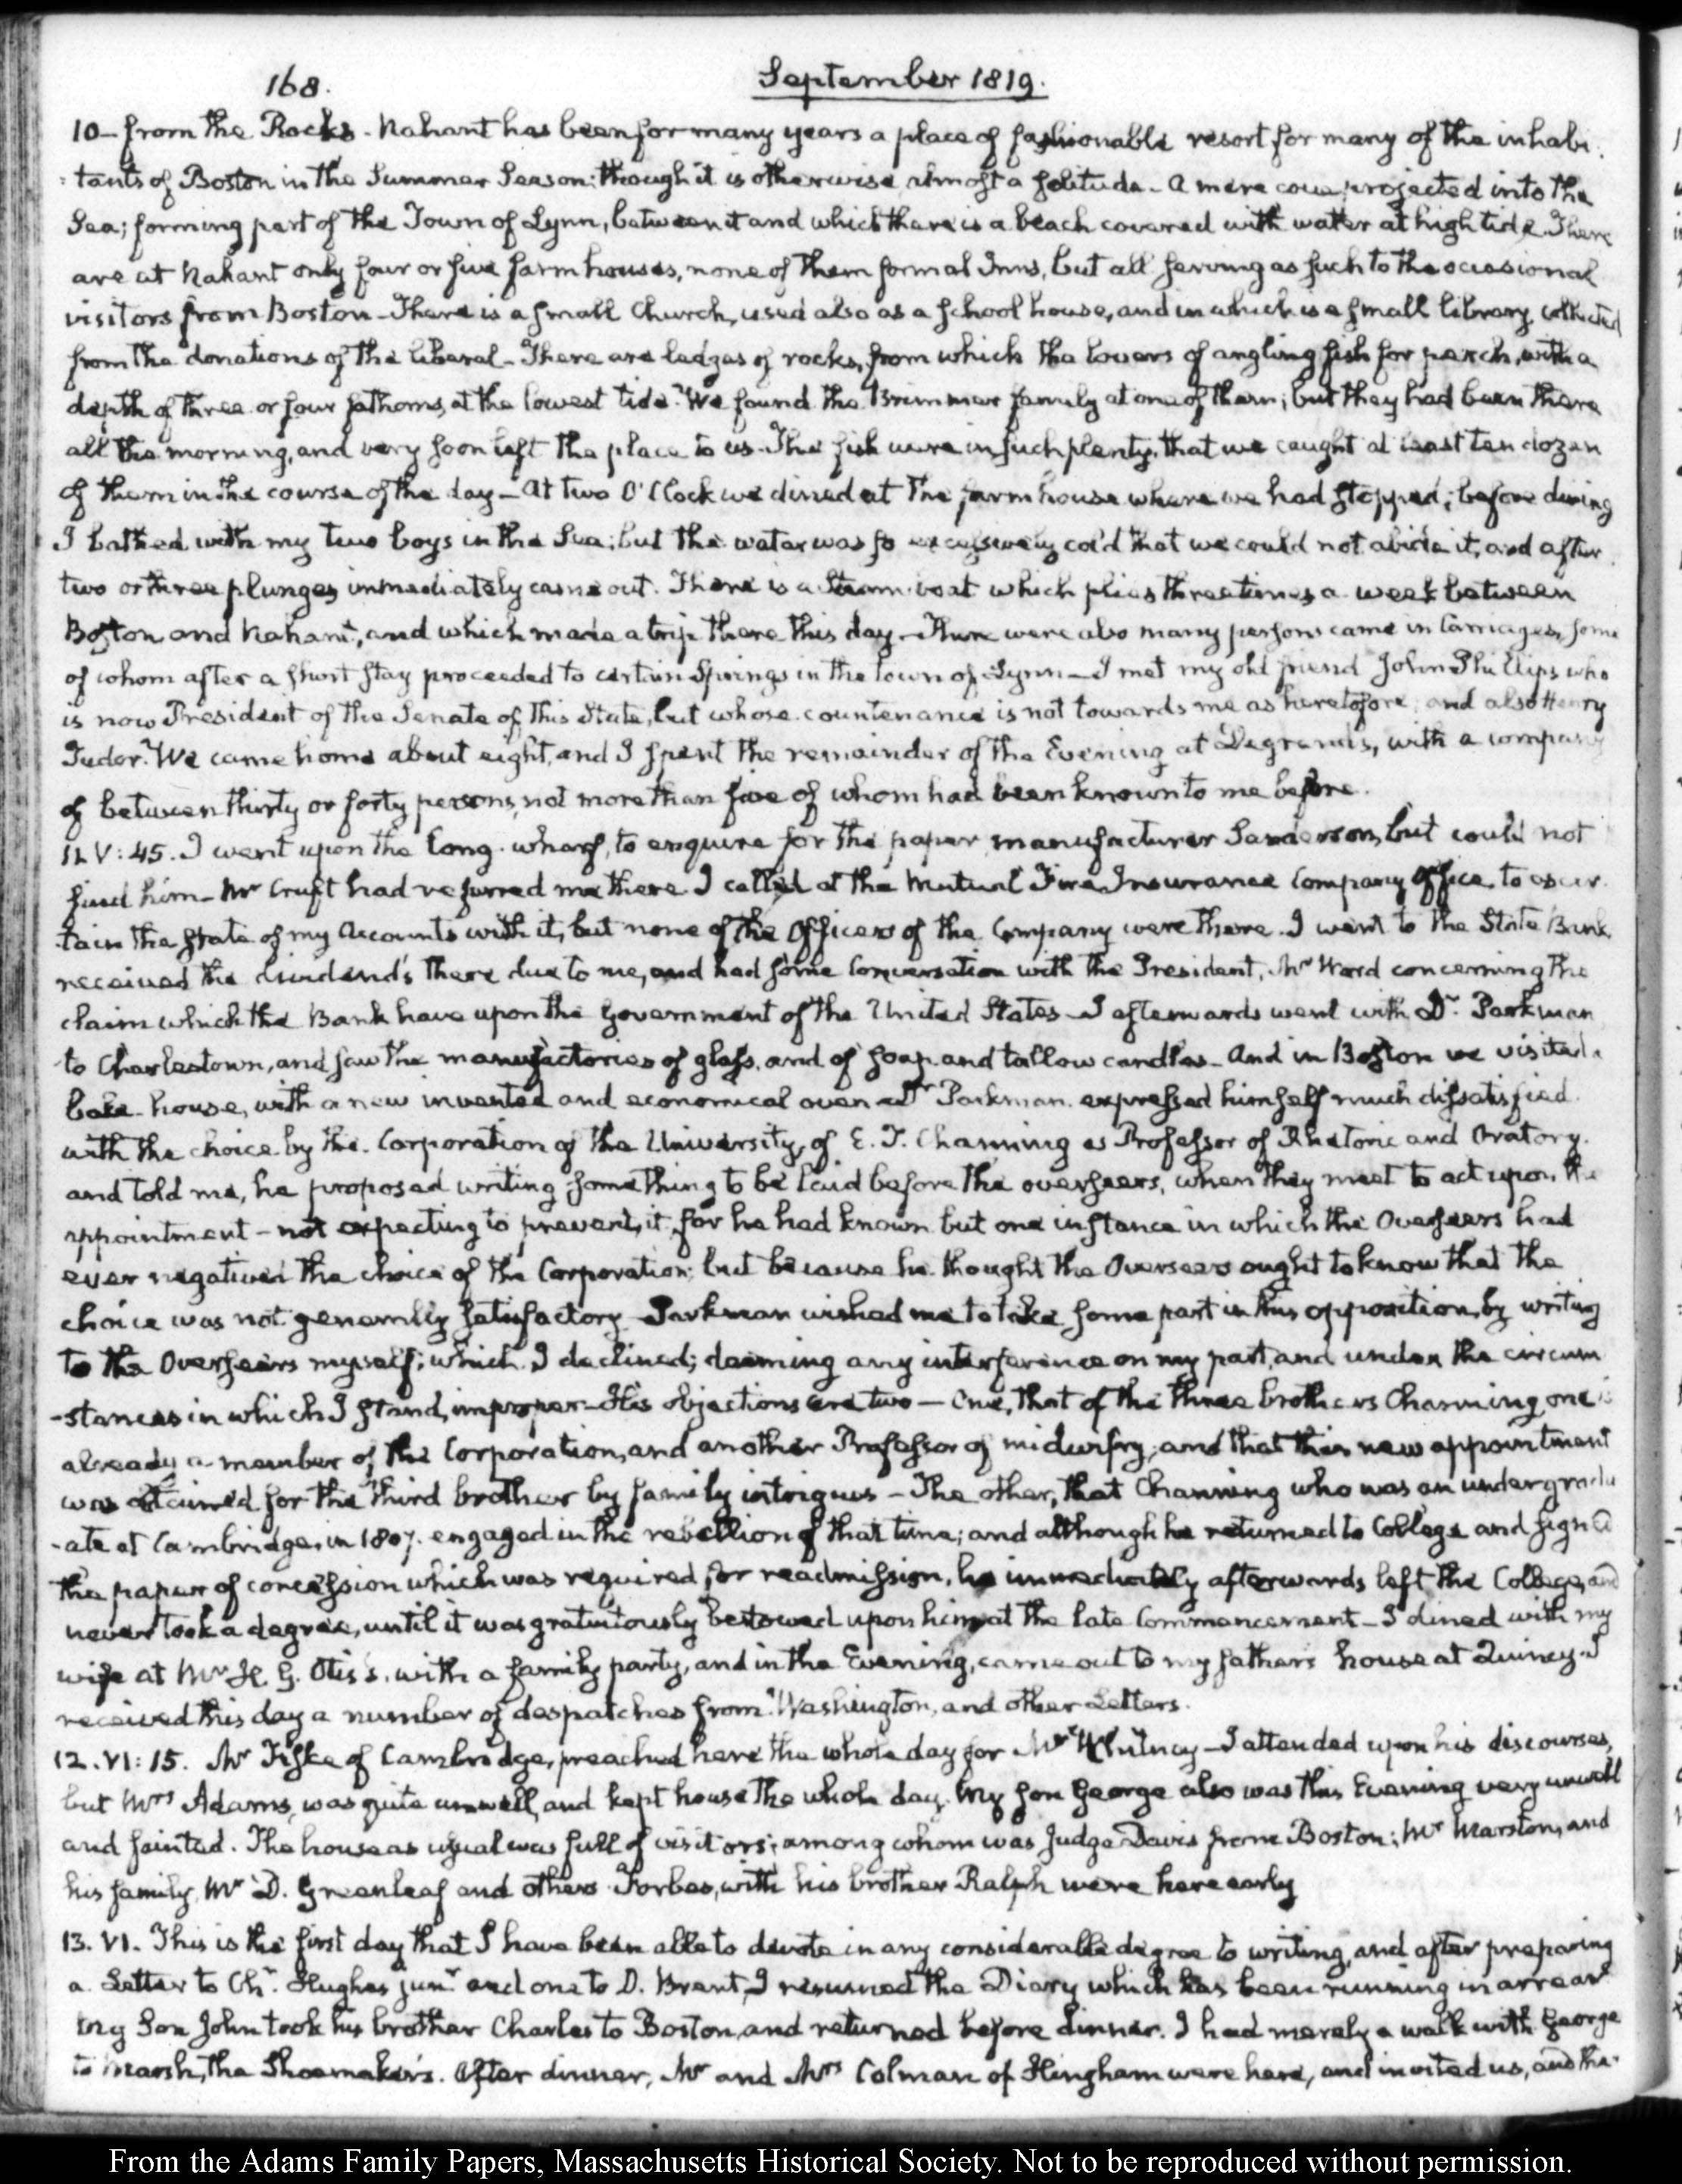 168.
September 1819.
10 – from the Rocks – Nahant has been for many years a place of fashionable resort for many of the inhabi-
-tants of Boston in the Summer Season: though it is otherwise almost a solitude – A mere cove projected into the
Sea; forming part of the Town of Lynn, between it and which there is a beach covered with water at high tide. There
are at Nahant only four or five farm houses, none of them formal Inns, but all serving as such to the occasional
visitors from Boston – There is a small Church, used also as a school house, and in which is a small library, collected
from the donations of the liberal – There are ledges of rocks, from which the lovers of angling fish for perch, with a
depth of three or four fathoms, at the lowest tide. We found the Brimmer family at one of them; but they had been there
all the morning, and very soon left the place to us – The fish were in such plenty, that we caught at least ten dozen
of them in the course of the day – At two O'Clock we dined at the farm house where we had stopped; before dining
I bathed with my two boys in the Sea; but the water was so excessively cold that we could not abide it, and after
two or three plunges immediately came out. There is a Steam-boat which plies three times a week between
Boston and Nahant, and which made a trip there this day – There were also many persons came in Carriages, some
of whom after a short stay proceeded to certain Springs in the town of Lynn – I met my old friend John Phillips who
is now President of the Senate of this State, but whose countenance is not towards me as heretofore; and also Henry
Tudor. We came home about eight, and I spent the remainder of the Evening at Degrand's, with a company
of between thirty or forty persons, not more than five of whom had been known to me before.
11. V: 45. I went upon the Long-wharf, to enquire for the paper manufacturer Sanderson, but could not
find him – Mr Cruft had referred me there. I called at the Mutual Fire Insurance Company Office, to ascer-
-tain the state of my Accounts with it, but none of the Officers of the Company were there. I went to the State Bank
received the dividends there due to me, and had some Conversation with the President, Mr Ward concerning the
claim which the Bank have upon the Government of the United States – I afterwards went with Dr. Parkman
to Charlestown, and saw the manufactories of glass, and of soap and tallow candles – And in Boston we visited a
bake-house, with a new invented and economical oven – Dr Parkman expressed himself much dissatisfied
with the choice by the Corporation of the University, of E. T. Channing as Professor of Rhetoric and Oratory.
and told me, he proposed writing something to be laid before the overseers, when they meet to act upon the
appointment – not expecting to prevent it, for he had known but one instance in which the Overseers had
ever negatived the choice of the Corporation; but because he thought the Overseers ought to know that the
choice was not generally satisfactory – Parkman wished me to take some part in this opposition, by writing
to the Overseers myself; which I declined; deeming any interference on my part, and under the circum-
-stances in which I stand, improper – His objections are two – One, that of the three brothers Channing, one is
already a member of the Corporation, and another Professor of midwifry; and that this new appointment
was obtained for the third brother by family intrigues – The other, that Channing who was an undergradu-
-ate at Cambridge, in 1807. engaged in the rebellion of that time; and although he returned to College and signed
the paper of concession which was required for readmission, he immediately afterwards left the College, and
never took a degree, until it was gratuitously bestowed upon him at the late Commencement – I dined with my
wife at Mr H. G. Otis's. with a family party, and in the Evening, came out to my father's house at Quincy. I
received this day a number of despatches from Washington, and other Letters.
12. VI: 15. Mr Fiske of Cambridge, preached here the whole day for Mr Whitney – I attended upon his discourses,
but Mrs Adams, was quite unwell, and kept house the whole day. My son George also was this Evening very unwell
and fainted. The house as usual was full of visitors; among whom was Judge Davis from Boston; Mr Marston, and
his family, Mr D. Greenleaf and others Forbes, with his brother Ralph were here early
13. VI. This is the first day that I have been able to devote in any considerable degree to writing, and after preparing
a Letter to Chr. Hughes junr and one to D. Brent, I resumed the Diary which has been running in arrear
My Son John took his brother Charles to Boston, and returned before dinner. I had merely a walk with George
to Marsh, the Shoemaker's. After dinner, Mr and Mrs Colman of Hingham were here, and invited us, and the
From the Adams Family Papers, Massachusetts Historical Society. Not to be reproduced without permission.